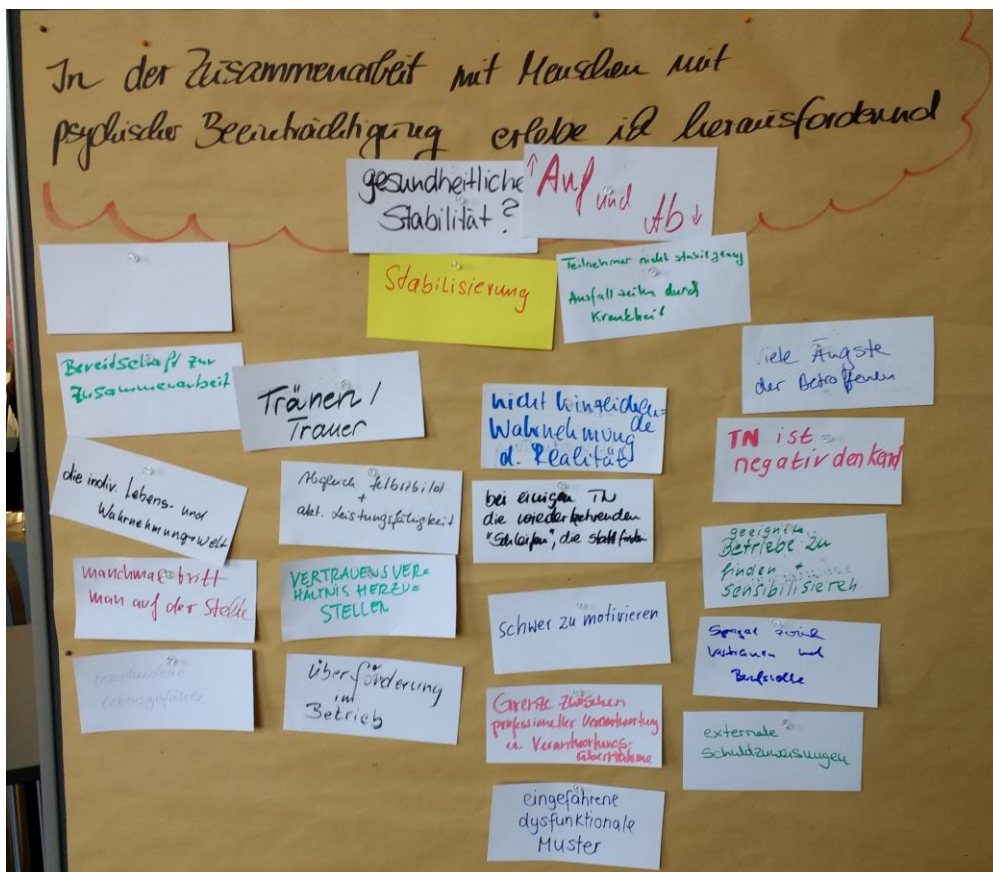 In der Zusammenarbeit mit Menschen mit
psychischer Beeinträchtigung erlebe ich herausfordernd
gesundheitliche
Stabilität?
↑Auf
und
Ab↓
Stabilisierung
Teilnehmer nicht stabil genug
Ausfallzeiten durch
Krankheit
Bereitschaft zur
Zusammenarbeit
Tränen /
Trauer
nicht hinreichen=
de
Wahrnehmung
d. Realität
viele Ängste
der Betroffenen
TN ist
negativ denkend
die indiv. Lebens- und
Wahrnehmungswelt
Abgleich Selbstbild
+
akt. Leistungsfähigkeit
bei einigen TN
die wiederkehrenden
"Schleifen", die stattfinden
geeignete
Betriebe zu
finden +
sensibilisieren
manchmal tritt
man auf der Stelle
VERTRAUENSVER-
HÄLTNIS HERZU-
STELLEN
schwer zu motivieren
Vertrauen und
verschiedene
Lebensgefühle
Überforderung
im
Betrieb
Grenze zwischen
professioneller Verantwortung
Verantwortungs-
übernahme
externale
Schuldzuweisungen
eingefahrene
dysfunktionale
Muster